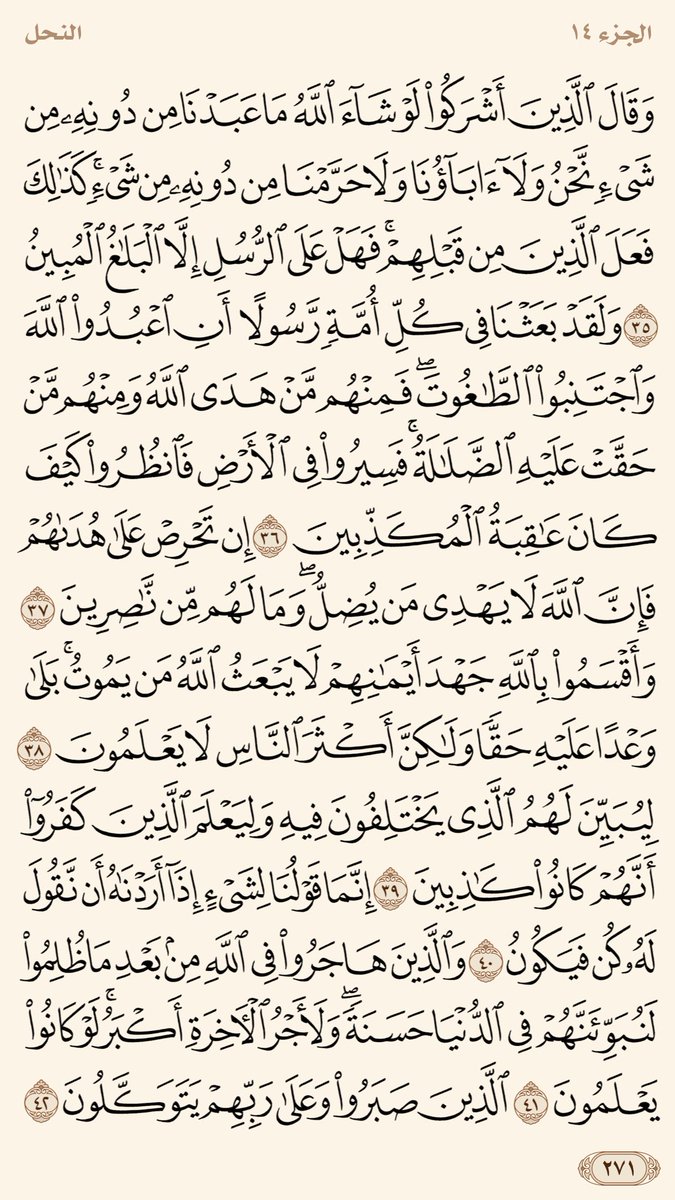 الجزء ١٤
النحل
وَقَالَ ٱلَّذِينَ أَشْرَكُوا۟ لَوْ شَآءَ ٱللَّهُ مَا عَبَدْنَا مِن دُونِهِۦ مِن
شَىْءٍ نَّحْنُ وَلَآ ءَابَآؤُنَا وَلَا حَرَّمْنَا مِن دُونِهِۦ مِن شَىْءٍ ۚ كَذَٰلِكَ
فَعَلَ ٱلَّذِينَ مِن قَبْلِهِمْ ۚ فَهَلْ عَلَى ٱلرُّسُلِ إِلَّا ٱلْبَلَٰغُ ٱلْمُبِينُ
٣٥ وَلَقَدْ بَعَثْنَا فِى كُلِّ أُمَّةٍ رَّسُولًا أَنِ ٱعْبُدُوا۟ ٱللَّهَ
وَٱجْتَنِبُوا۟ ٱلطَّٰغُوتَ ۖ فَمِنْهُم مَّنْ هَدَى ٱللَّهُ وَمِنْهُم مَّنْ
حَقَّتْ عَلَيْهِ ٱلضَّلَٰلَةُ ۚ فَسِيرُوا۟ فِى ٱلْأَرْضِ فَٱنظُرُوا۟ كَيْفَ
كَانَ عَٰقِبَةُ ٱلْمُكَذِّبِينَ ٣٦ إِن تَحْرِصْ عَلَىٰ هُدَىٰهُمْ
فَإِنَّ ٱللَّهَ لَا يَهْدِى مَن يُضِلُّ ۖ وَمَا لَهُم مِّن نَّٰصِرِينَ ٣٧
وَأَقْسَمُوا۟ بِٱللَّهِ جَهْدَ أَيْمَٰنِهِمْ لَا يَبْعَثُ ٱللَّهُ مَن يَمُوتُ ۚ بَلَىٰ
وَعْدًا عَلَيْهِ حَقًّا وَلَٰكِنَّ أَكْثَرَ ٱلنَّاسِ لَا يَعْلَمُونَ ٣٨
لِيُبَيِّنَ لَهُمُ ٱلَّذِى يَخْتَلِفُونَ فِيهِ وَلِيَعْلَمَ ٱلَّذِينَ كَفَرُوٓا۟
أَنَّهُمْ كَانُوا۟ كَٰذِبِينَ ٣٩ إِنَّمَا قَوْلُنَا لِشَىْءٍ إِذَآ أَرَدْنَٰهُ أَن نَّقُولَ
لَهُۥ كُن فَيَكُونُ ٤٠ وَٱلَّذِينَ هَاجَرُوا۟ فِى ٱللَّهِ مِنۢ بَعْدِ مَا ظُلِمُوا۟
لَنُبَوِّئَنَّهُمْ فِى ٱلدُّنْيَا حَسَنَةً ۖ وَلَأَجْرُ ٱلْـَٔاخِرَةِ أَكْبَرُ ۚ لَوْ كَانُوا۟
يَعْلَمُونَ ٤١ ٱلَّذِينَ صَبَرُوا۟ وَعَلَىٰ رَبِّهِمْ يَتَوَكَّلُونَ ٤٢
٢٧١